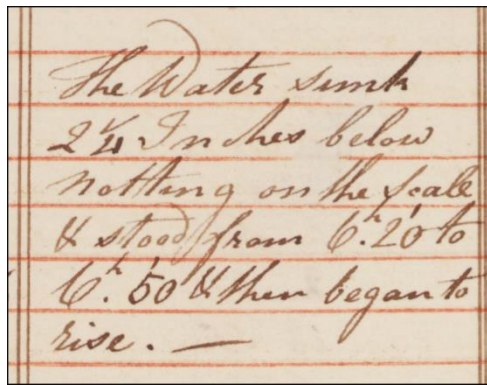 The Water sunk
2 1/4 Inches below
notting on the scale
& stood from 6.h 20' to
6.h 50' & then began to
rise. —